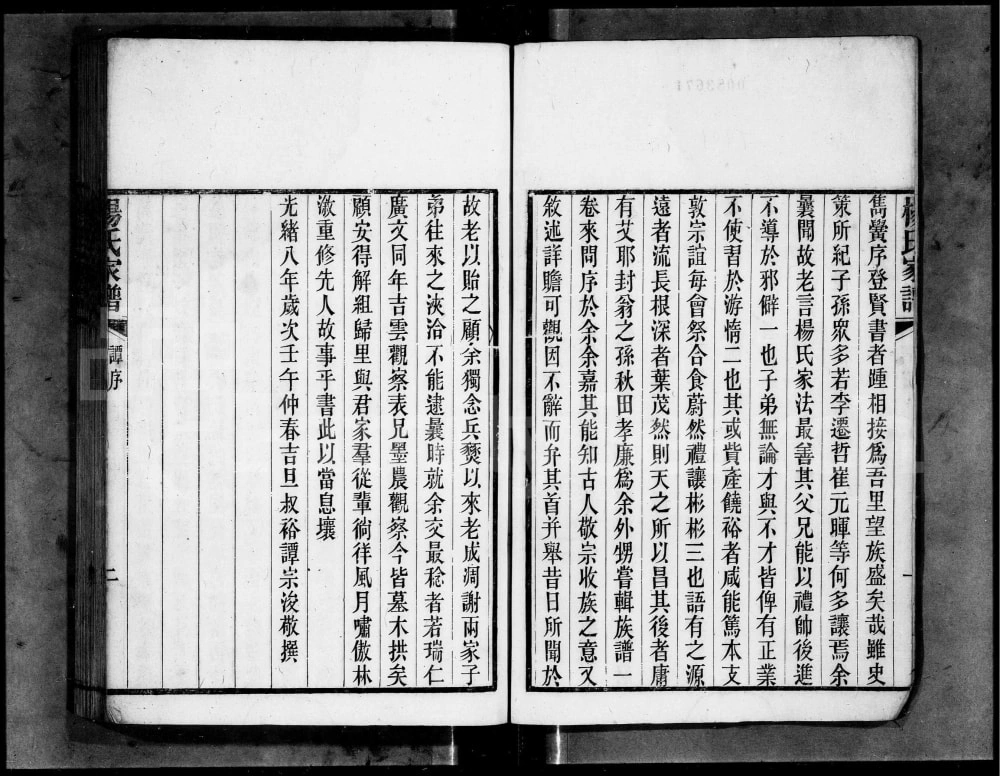 雋黌序登賢書者踵相接為吾里望族盛矣哉雖史
策所紀子孫眾多若李遷哲崔元暐等何多讓焉余
曩聞故老言楊氏家法最善其父兄能以禮帥後進
不導於邪僻一也子弟無論才與不才皆俾有正業
不使習於游惰二也其或貲產饒裕者咸能篤本支
敦宗誼每會祭合食蔚然禮讓彬彬三也語有之源
遠者流長根深者葉茂然則天之所以昌其後者庸
有艾耶封翁之孫秋田孝廉為余外甥嘗輯族譜一
卷來問序於余余嘉其能知古人敬宗收族之意又
敘述詳贍可觀因不辭而弁其首并舉昔日所聞於
故老以貽之顧余獨念兵燹以來老成凋謝兩家子
弟往來之浹洽不能逮曩時就余交最稔者若瑞仁
廣文同年吉雲觀察表兄墨農觀察今皆墓木拱矣
顧安得解組歸里與君家羣從輩徜徉風月嘯傲林
澂重修先人故事乎書此以當息壤
光緒八年歲次壬午仲春吉旦叔裕譚宗浚敬撰
楊氏家譜
譚序
二